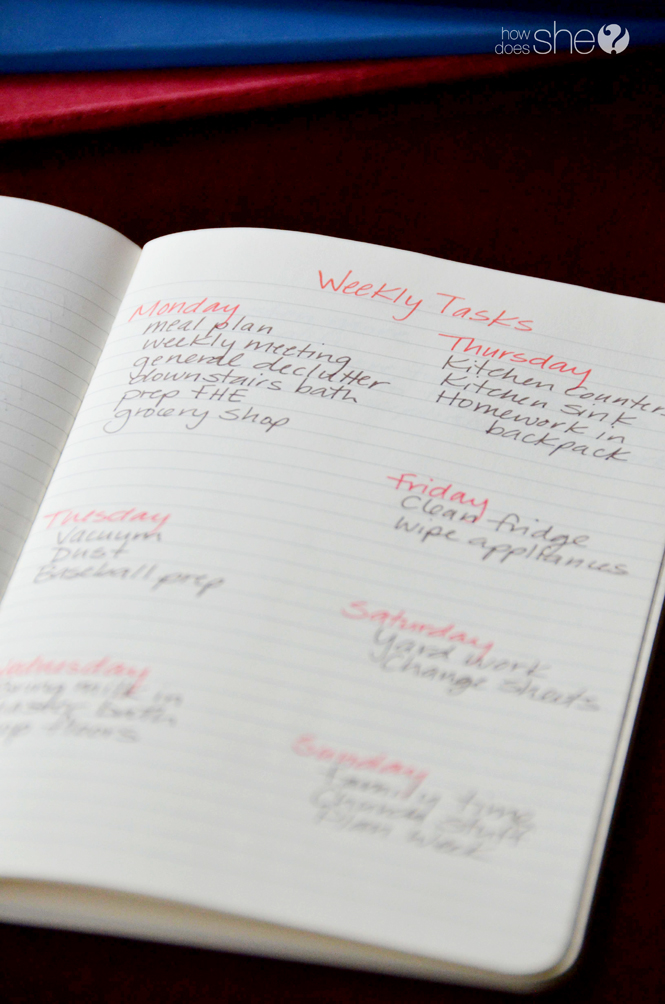 how
does She?
Weekly Tasks
Monday
meal plan
weekly meeting
general declutter
downstairs bath
prep FHE
grocery shop
Tuesday
Vacuum
Dust
Baseball prep
Wednesday
bring milk in
master bath
mop floors
Thursday
Kitchen counters
Kitchen sink
Homework in
backpack
Friday
Clean fridge
Wipe appliances
Saturday
Yard work
Change sheets
Sunday
Family time
Church stuff
Plan week